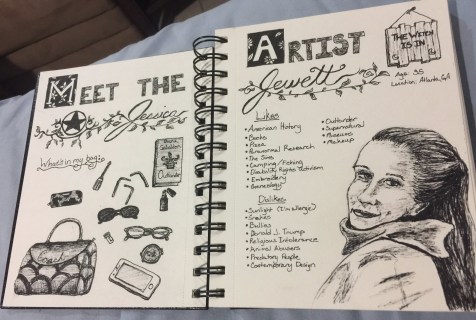 MEET THE
Jessica
What's in my bag:
Outlander
ARTIST
Jewett
THE WITCH
IS IN
Age: 35
Location: Atlanta, GA
Likes
• American History
• Books
• Pizza
• Paranormal Research
• The Sims
• Camping/Fishing
• Disability Rights Activism
• Embroidery
• Genealogy
• Outlander
• Supernatural
• Museums
• Makeup
Dislikes
• Sunlight (I'm allergic)
• Snakes
• Bullies
• Donald J. Trump
• Religious Intolerance
• Animal Abusers
• Predatory People
• Contemporary Design